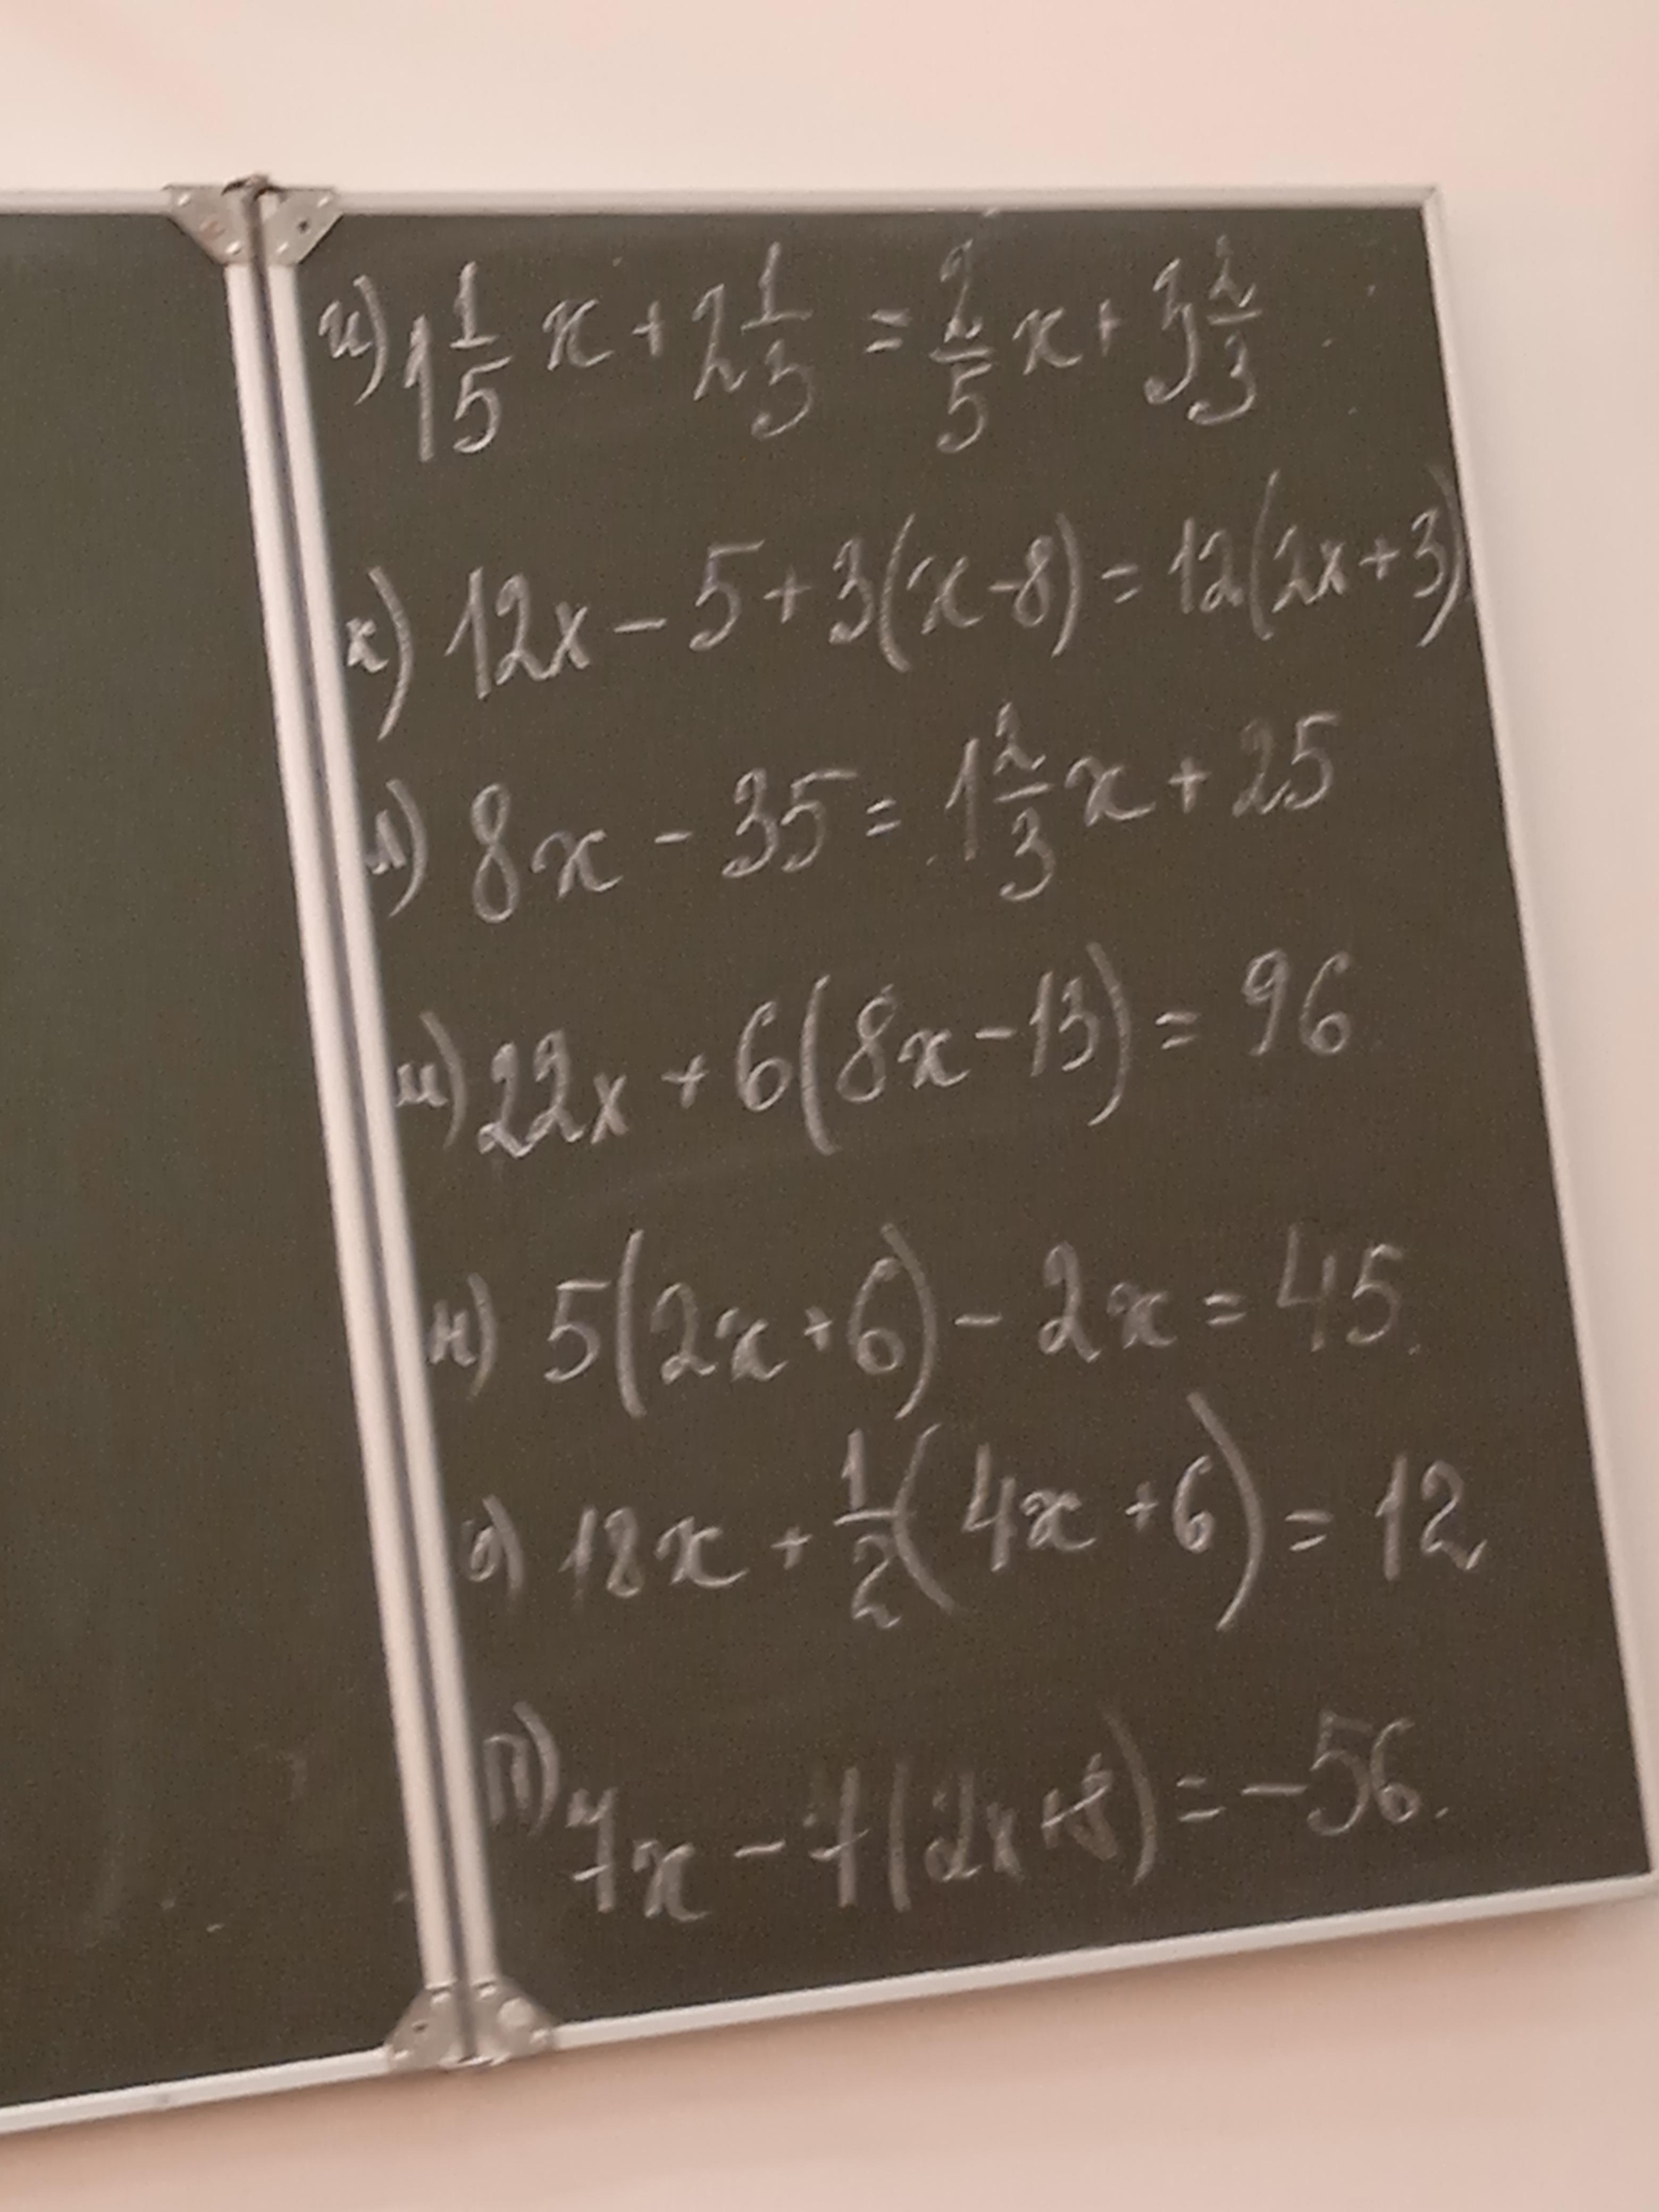 и) 1 1/5 x + 2 1/3 = 2/5 x + 3 2/3
к) 12x - 5 + 3(x - 8) = 12(2x + 3)
л) 8x - 35 = 1 2/3 x + 25
м) 22x + 6(8x - 13) = 96
н) 5(2x + 6) - 2x = 45
о) 18x + 1/2(4x + 6) = 12
п) 7x - 7(2x + 8) = -56.